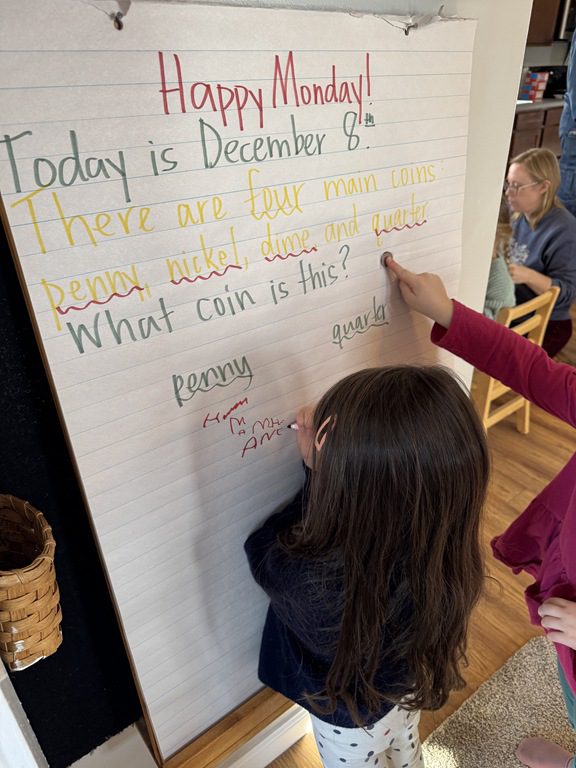 Happy Monday!
Today is December 8th.
There are four main coins:
penny, nickel, dime and quarter
What coin is this?
quarter
penny